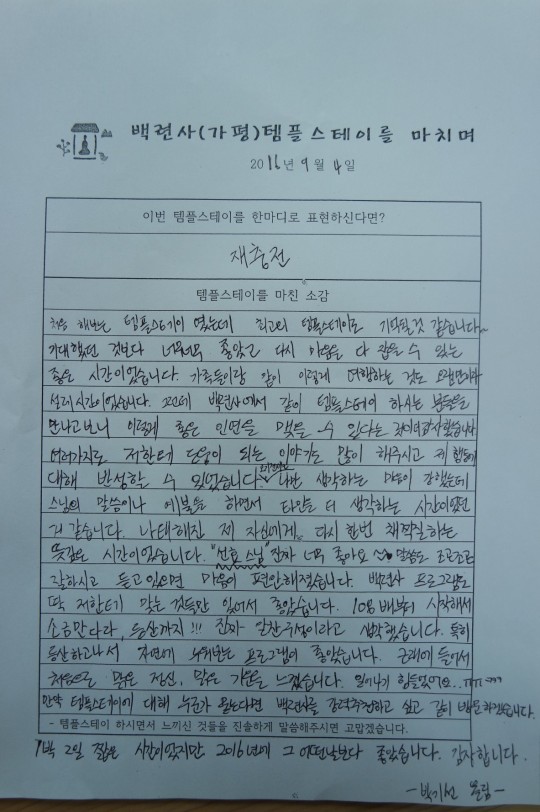 백련사(가평)템플스테이를 마치며
2016년 9월 4일
이번 템플스테이를 한마디로 표현하신다면?
재충전
템플스테이를 마친 소감
처음 해보는 템플스테이 였는데 최고의 템플스테이로 기억될것 같습니다~
기대했던 것보다 너무너무 좋았고 다시 마음을 다 잡을 수 있는
좋은 시간이었습니다. 가족들이랑 같이 이렇게 여행하는 것도 오랜만이라
설레 시간이었습니다. 그런데 백련사에서 같이 템플스테이 하시는 분들을
만나고보니 이렇게 좋은 인연을 맺을 수 있다는 것이 감사했습니다
여러가지로 저한테 단응이 되는 이야기를 많이 해주시고 제 행동에
대해 반성할 수 있었습니다 나만 생각하는 마음이 강했는데
스님의 말씀이나 예불을 하면서 타인을 더 생각하는 시간이었던
거 같습니다. 나태해진 제 자신에게 다시 한번 채찍질하는
뜻깊은 시간이었습니다. "선효 스님" 진짜 너무 좋아요 말씀도 조곤조곤
잘하시고 듣고 있으면 마음이 편안해졌습니다. 백련사 프로그램도
딱 저한테 맞는 것들만 있어서 좋았습니다. 108배부터 시작해서
소금만다라, 등산까지!!! 진짜 알찬구성이라고 생각했습니다. 특히
등산하고나서 자연에 누워있는 프로그램이 좋았습니다. 근래에 들어서
처음으로 맑은 정신, 맑은 기운을 느꼈습니다. 일어나기 힘들었어요..ㅠㅠ
만약 템플스테이에 대해 누군가 묻는다면 백련사를 강력추천하고 싶고 같이 방문하겠습니다.
- 템플스테이 하시면서 느끼신 것들을 진솔하게 말씀해주시면 고맙겠습니다.
1박 2일 짧은 시간이었지만 2016년에 그 어떤날보다 좋았습니다. 감사합니다.
- 박기선 올림 -